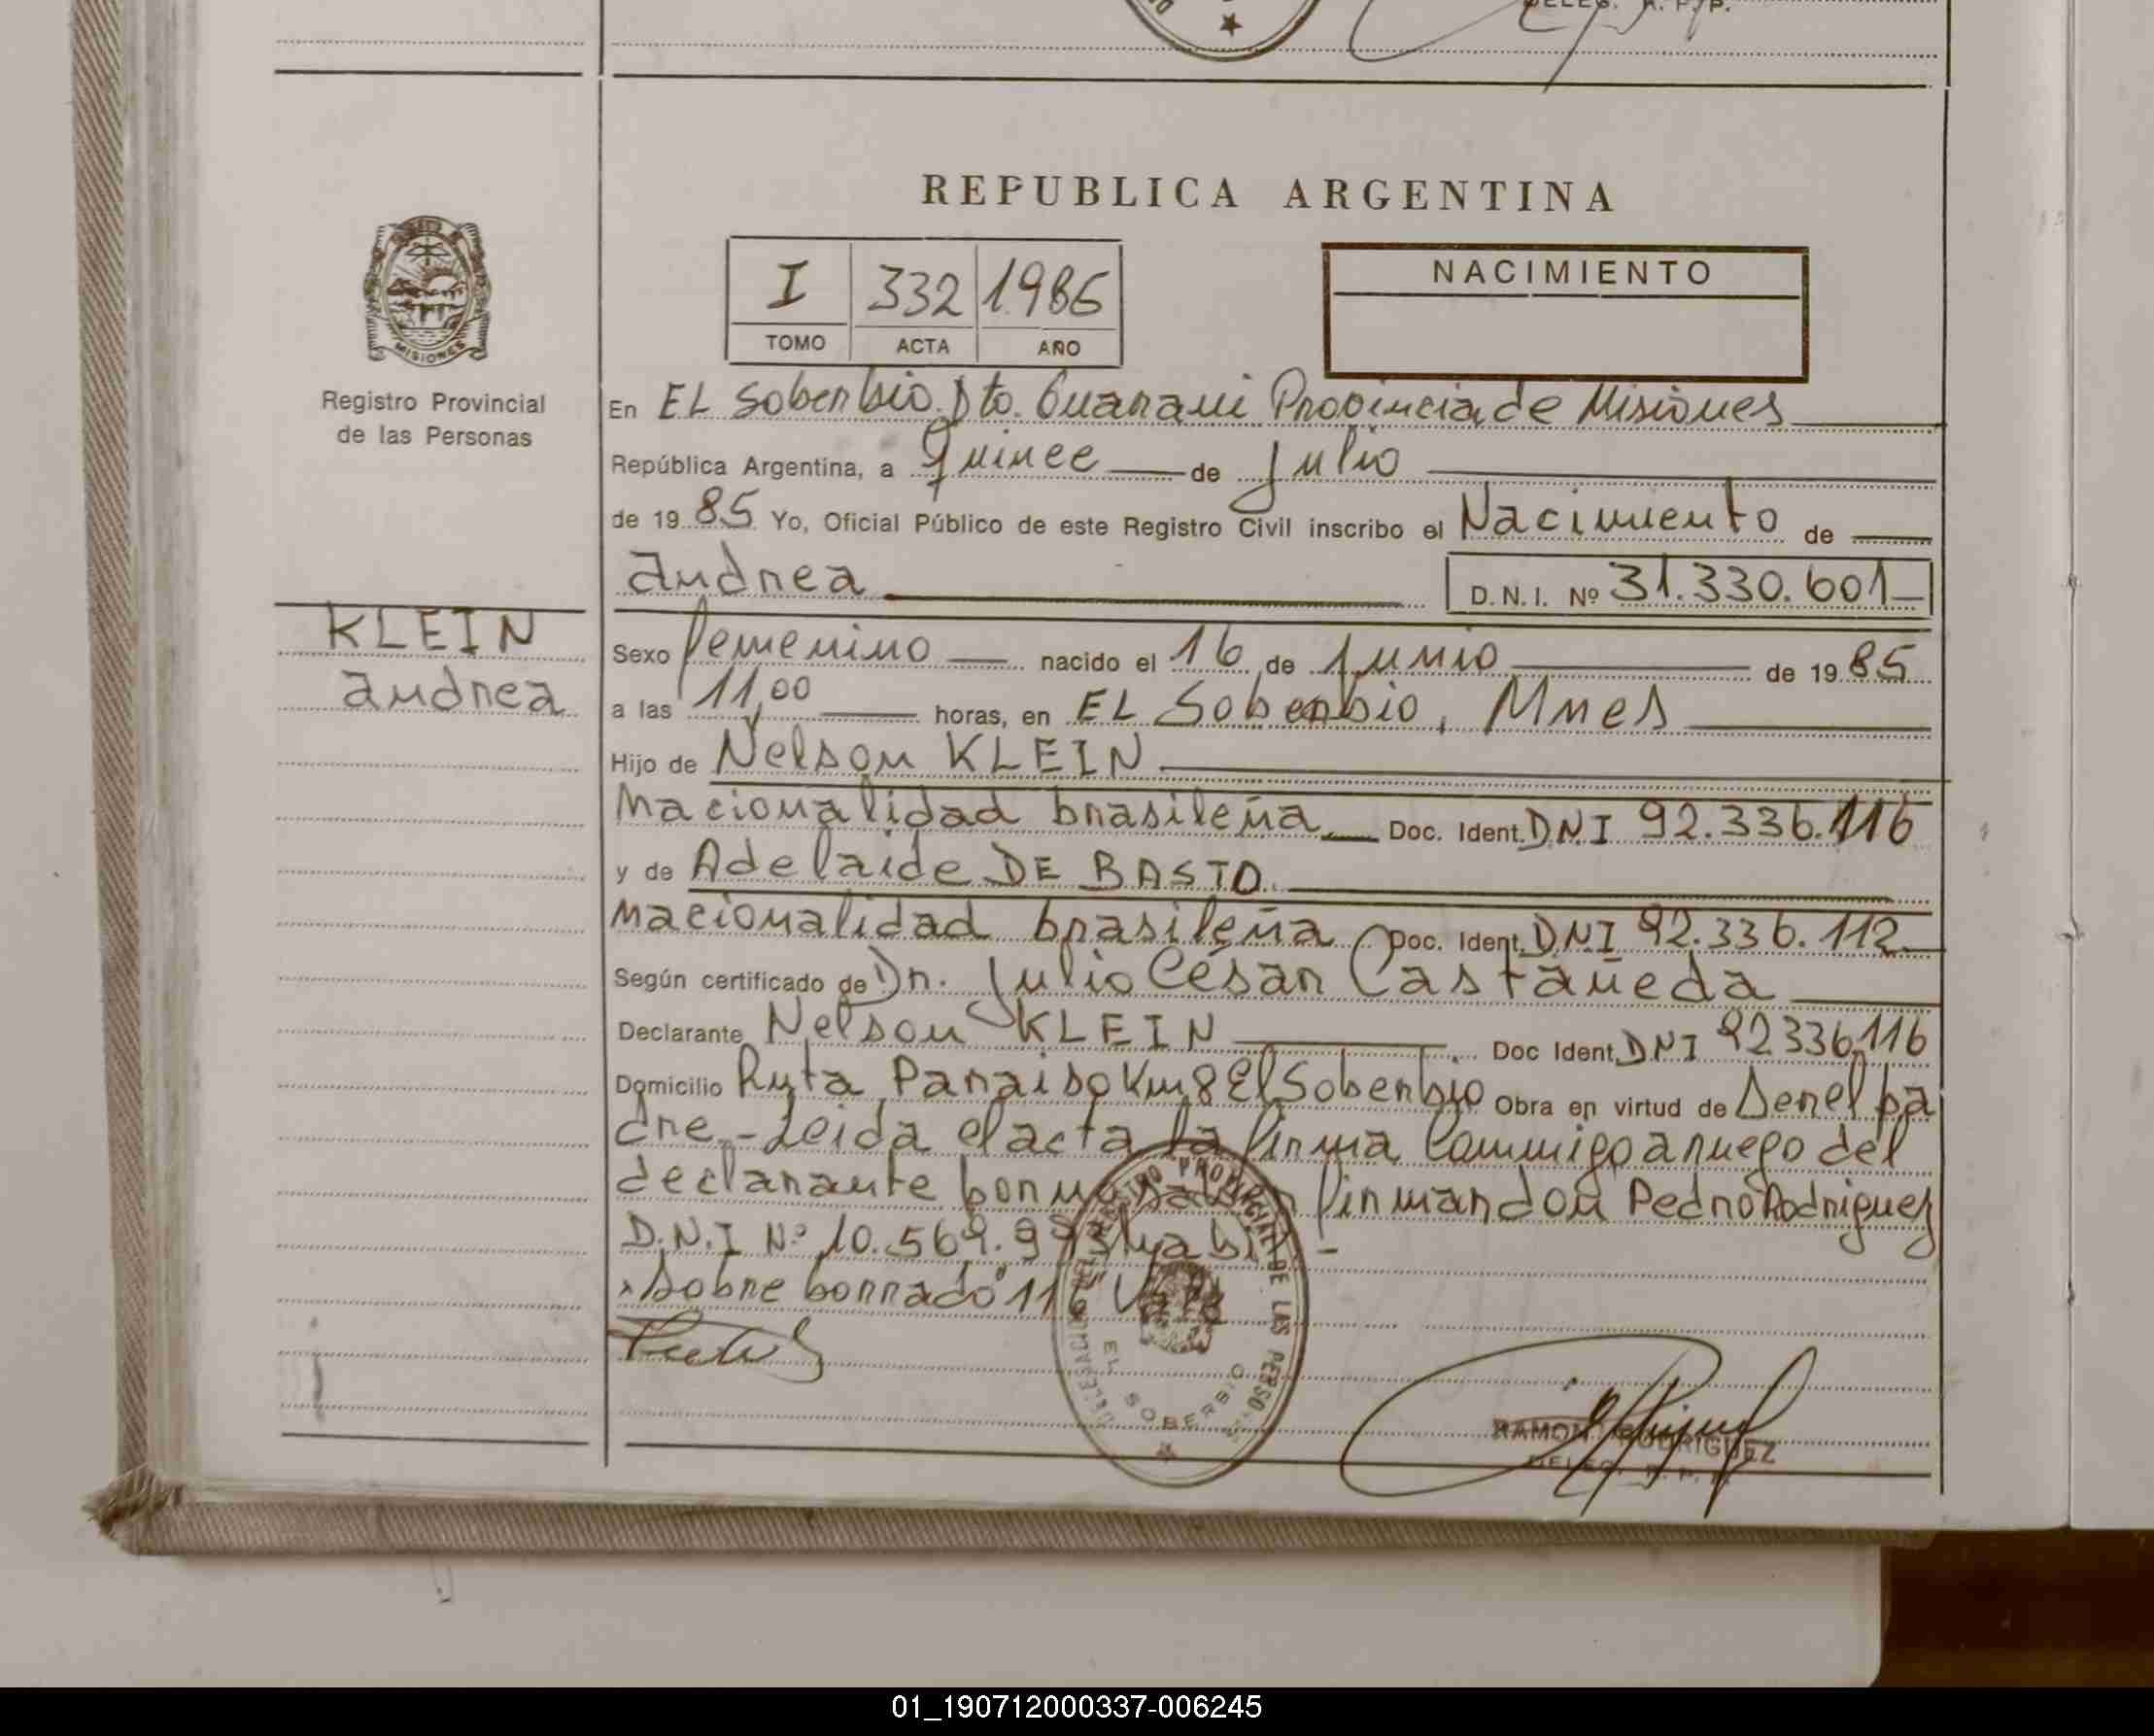 DELEG. R. P. P.
REPUBLICA ARGENTINA
I 332 1986
TOMO ACTA AÑO
NACIMIENTO
MISIONES
Registro Provincial
de las Personas
En EL Soberbio. Dto. Guarani Provincia de Misiones
República Argentina, a quince de Julio
de 1985 Yo, Oficial Público de este Registro Civil inscribo el Nacimiento de
andrea D.N.I. Nº 31.330.601
KLEIN
andrea
Sexo femenino nacido el 16 de junio de 1985
a las 11,00 horas, en EL Soberbio, Mnes
Hijo de Nelson KLEIN
nacionalidad brasileña Doc. Ident. D.N.I 92.336.116
y de Adelaide DE BASTO
nacionalidad brasileña Doc. Ident. D.N.I 92.336.112
Según certificado de Dr. Julio César Castañeda
Declarante Nelson KLEIN Doc Ident. DNI 92336116
Domicilio Ruta Paraiso Km 8 El Soberbio Obra en virtud de Ser el pa
dre.- Leida el acta la firma conmigo a ruego del
declarante por no saber firmar don Pedro Rodriguez
D.N.I Nº 10.569. habil -
Sobre borrado "116" Vale
REGISTRO PROVINCIAL DE LAS PERSONAS
EL SOBERBIO
RAMON RODRIGUEZ
DELEG. R. P. P.
01_190712000337-006245